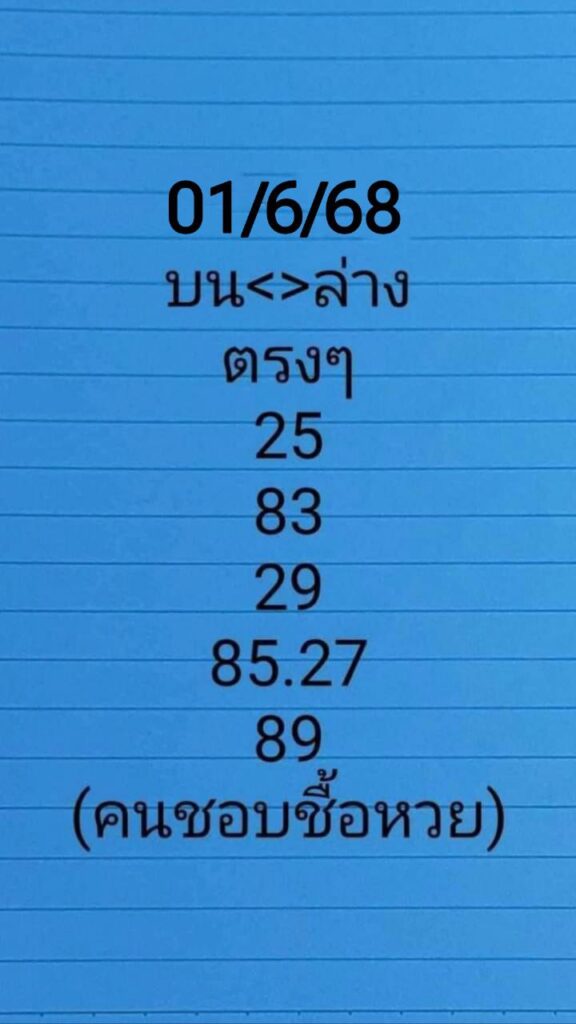 01/6/68
บน<>ล่าง
ตรงๆ
25
83
29
85.27
89
(คนชอบชื้อหวย)